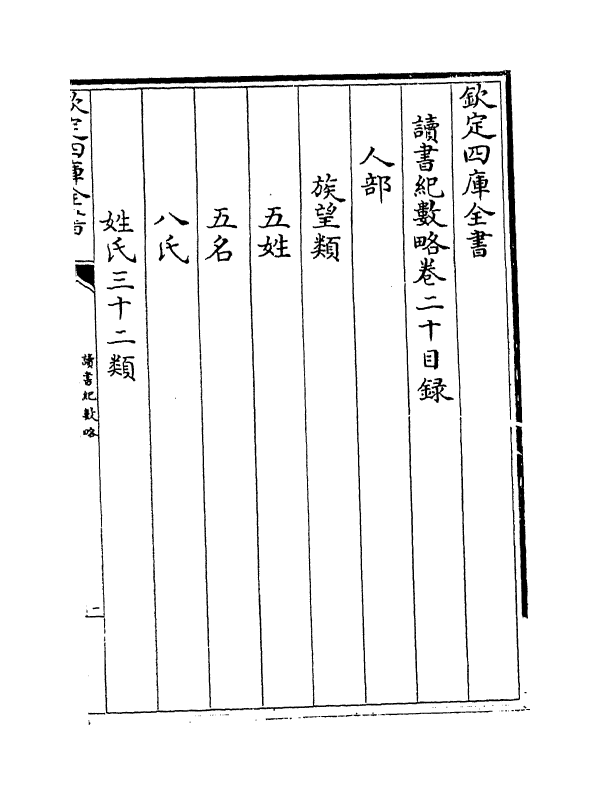 欽定四庫全書
讀書紀數略卷二十目録
人部
族望類
五姓
五名
八氏
姓氏三十二類
欽定四庫全書
讀書紀數略